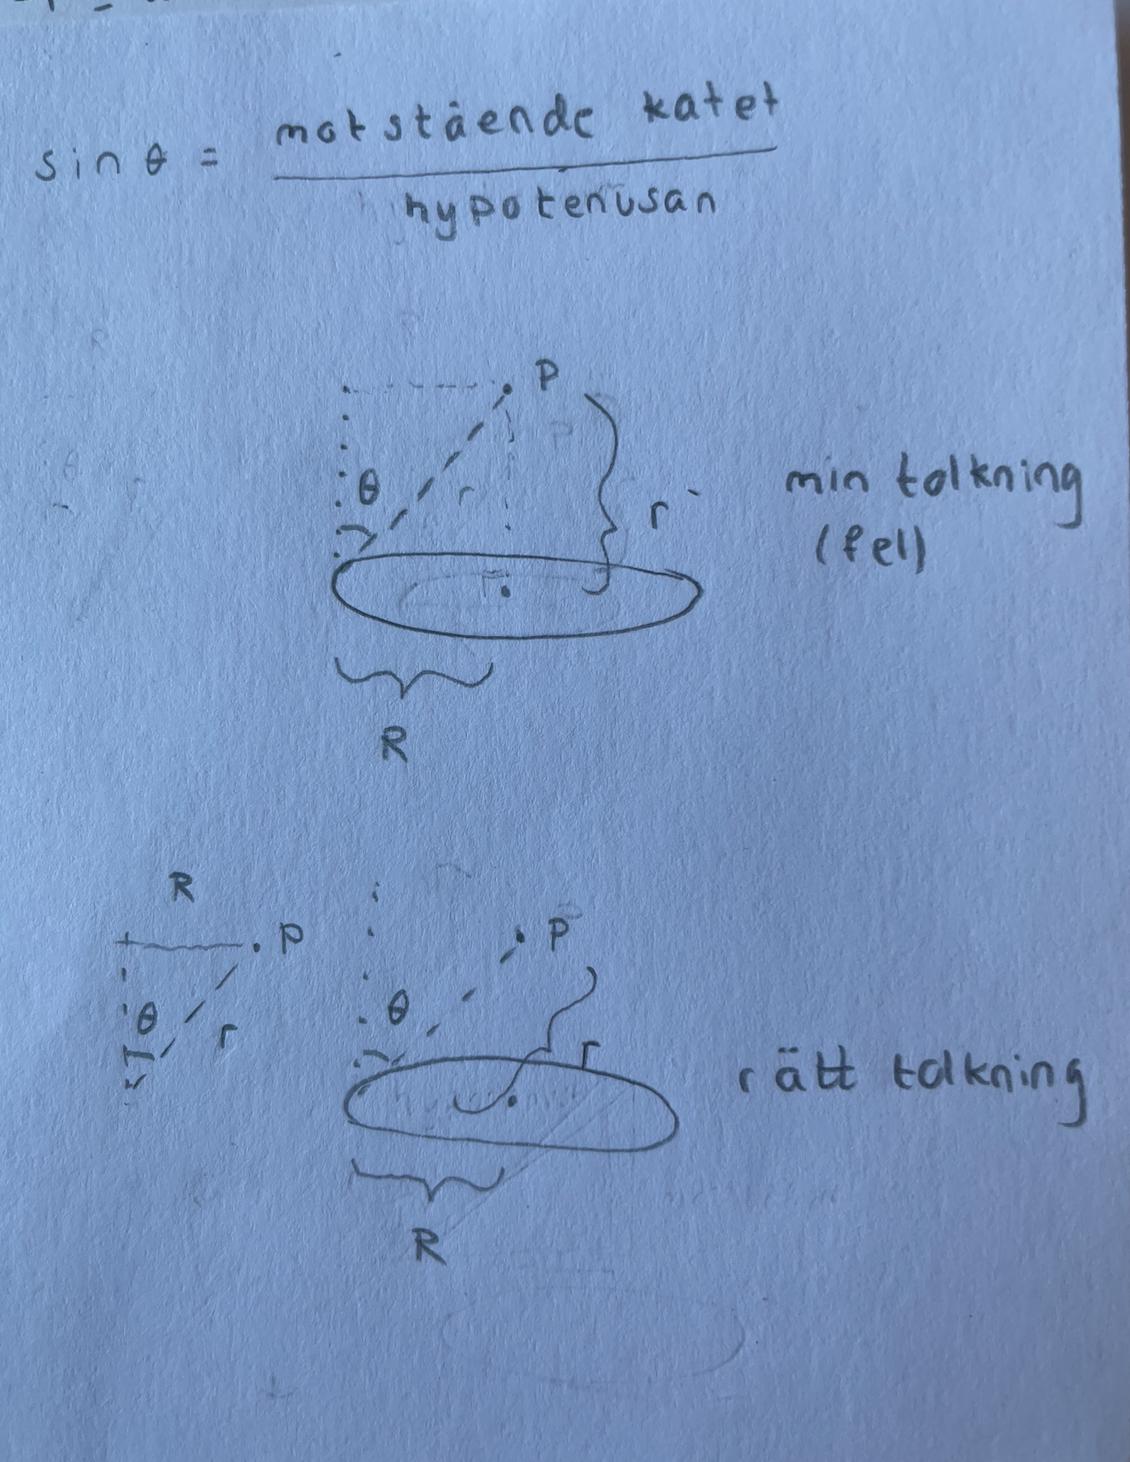 sin θ = motstående katet
hypotenusan
P
θ
r
r
min tolkning
(fel)
R
R
P
θ
r
P
θ
r
rätt tolkning
R